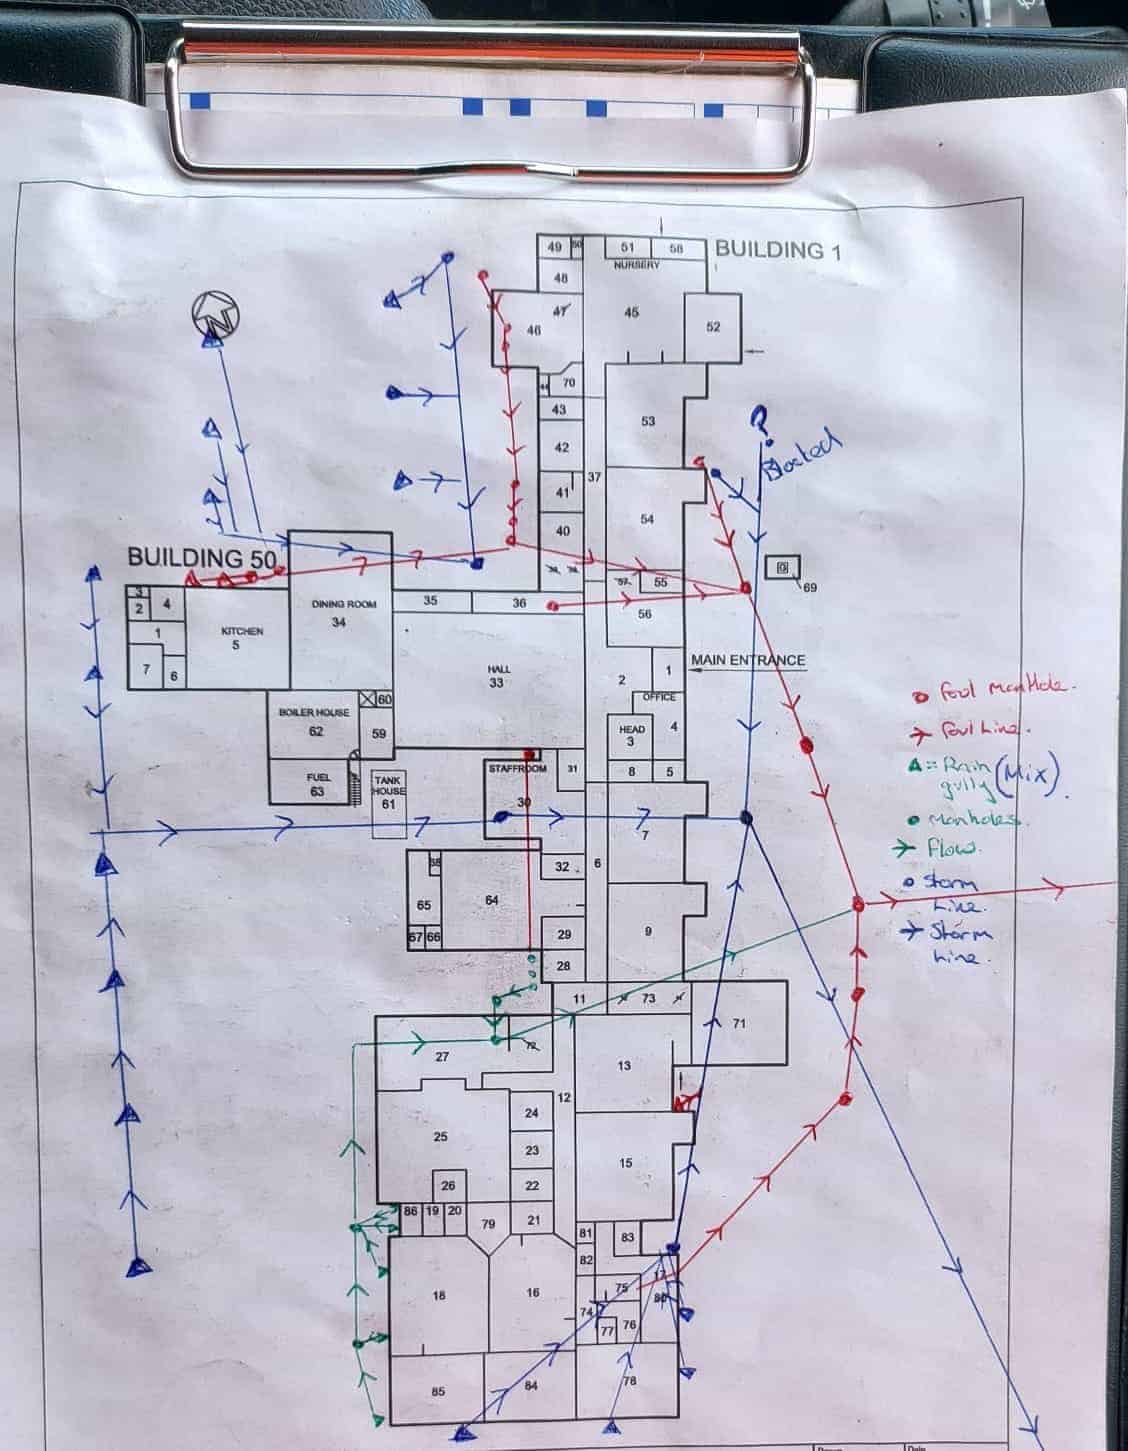 49
50
51
58
BUILDING 1
NURSERY
48
47
45
46
52
N
70
44
43
53
42
?
Blocked
37
41
54
40
BUILDING 50
69
57
55
3
2
4
35
36
DINING ROOM
34
56
1
KITCHEN
5
7
6
HALL
33
MAIN ENTRANCE
2
1
OFFICE
60
BOILER HOUSE
62
59
HEAD
3
4
FUEL
63
TANK
HOUSE
61
STAFFROOM
30
31
8
5
7
foul manhole.
foul Line.
= Rain
gully (Mix).
manholes.
flow.
Storm
Line.
Storm
Line.
38
32
6
65
64
67
66
29
9
28
11
73
71
27
72
13
12
24
25
23
15
26
22
86
19
20
79
21
81
83
82
17
80
18
16
75
74
76
77
85
84
78
Drawn
Date